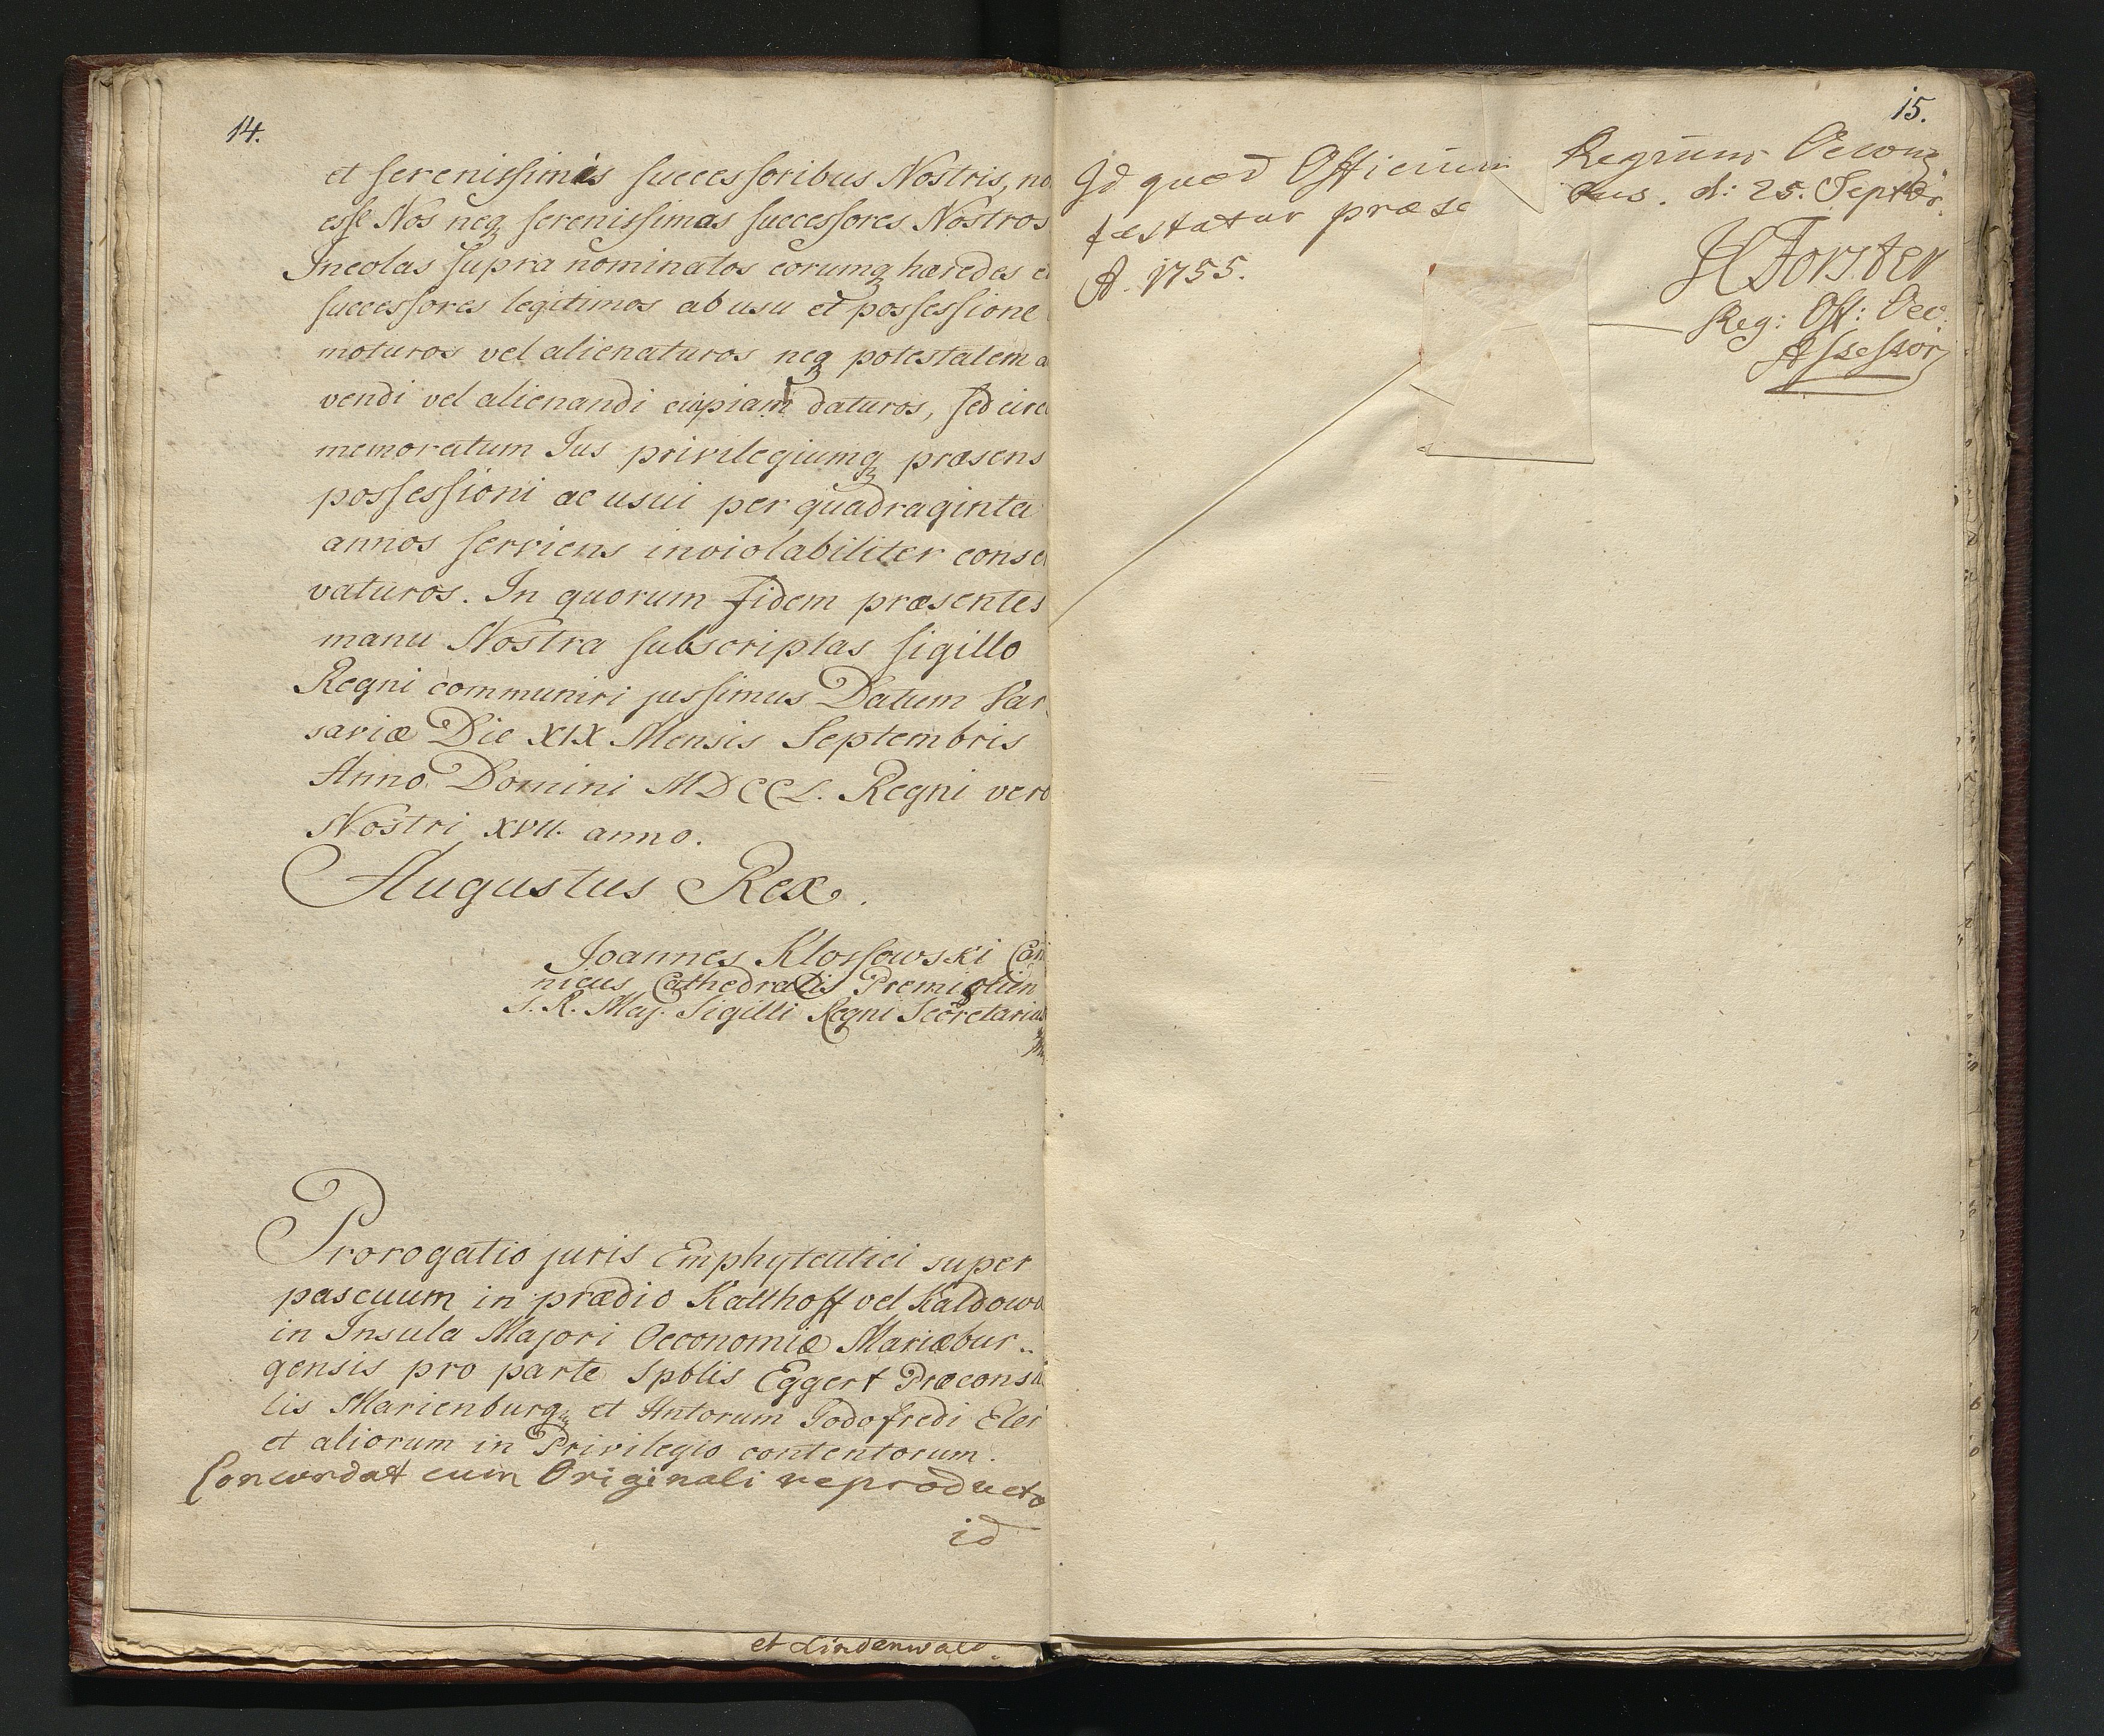 14.
et serenissimis successoribus Nostris, no
esse Nos neq serenissimos successores Nostros
Incolas supra nominatos eorumq hæredes e
successores legitimos ab usu et possessione
moturos vel alienaturos neq potestatem a
vendi vel alienandi cuipiam daturos, sed circa
memoratum Jus privilegiumq præsens
possessioni ac usui per quadraginta
annos serviens inviolabiliter conse
vaturos. In quorum fidem præsentes
manu Nostra subscriptas sigillo
Regni communiri jussimus Datum Var
saviæ Die XIX Mensis Septembris
Anno Domini MDCCL. Regni vero
Nostri XVII. anno.
Augustus Rex.
Joannes Klossowski Can
nicus Cathedralis Premislien
S. R. Maj. Sigilli Regni Secretarius
Prorogatio juris Emphyteutici super
pascuum in prædio Kalthoff vel Kaldowo
in Insula Majori Oeconomiæ Mariæbur..
gensis pro parte Spblis Eggert Præconsu
lis Marienburg. et Hntorum Godofredi Eler
et aliorum in Privilegio contentorum.
Concordat cum Originali reproducto
id
et Lindenwald.
15.
Id quod Officium Regium Oecon
testatur præse tus. d: 25. Septbr.
A. 1755.
HForster
Reg: Off: Oec:
Assessor